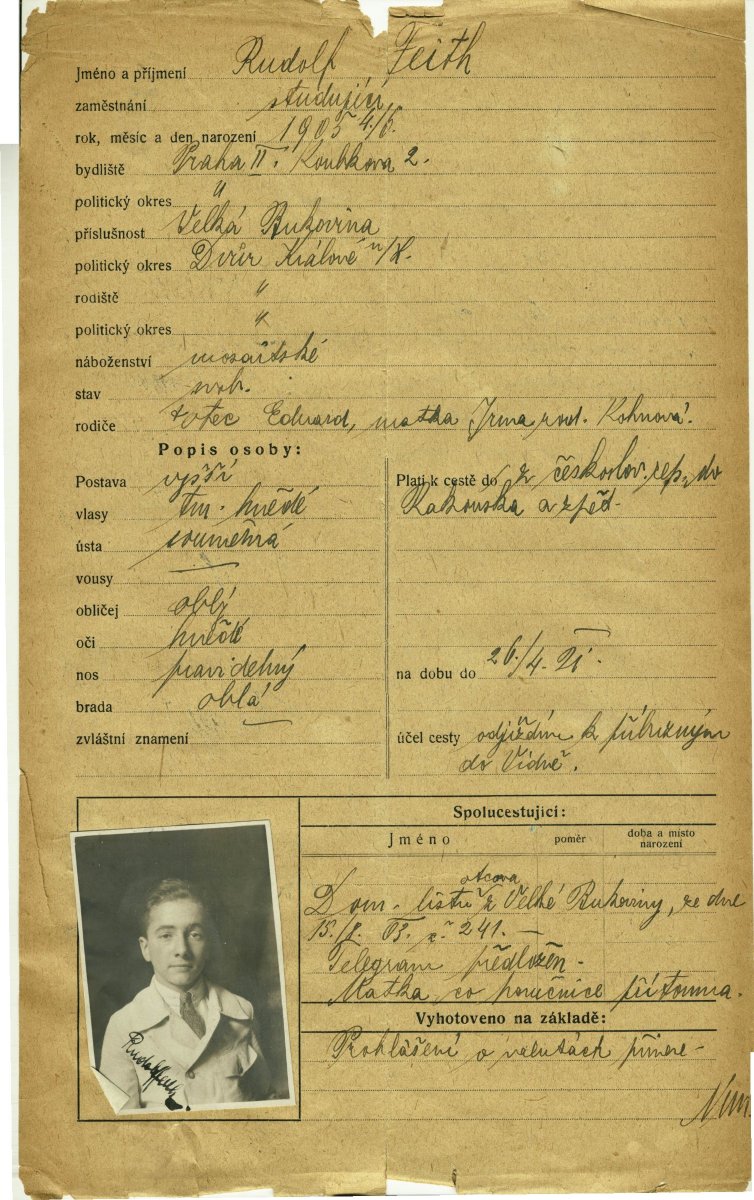 Jméno a příjmení Rudolf Feith
zaměstnání studující
rok, měsíc a den narození 1905 4/6.
bydliště Praha II. Koubkova 2.
politický okres "
příslušnost Velká Bukovina
politický okres Dvůr Králové n/L.
rodiště "
politický okres "
náboženství mosaitské
stav svob.
rodiče otec Eduard, matka Irma, rod. Kohnová.
Popis osoby:
Postava vyšší
vlasy tm. hnědé
ústa souměrná
vousy —
obličej oblý
oči hnědé
nos pravidelný
brada oblá
zvláštní znamení —
Platí k cestě do z českoslov. rep. do
Rakouska a zpět.
na dobu do 26./4. 21.
účel cesty odjíždím k příbuzným
do Vídně.
Spolucestující:
Jméno poměr doba a místo narození
otcova
Dom. listu z Velké Bukoviny, ze dne
15./8. 03. č. 241. —
Telegram předložen.
Matka co poručnice přítomna.
Vyhotoveno na základě:
Prohlášení o valutách
Rudolf Feith